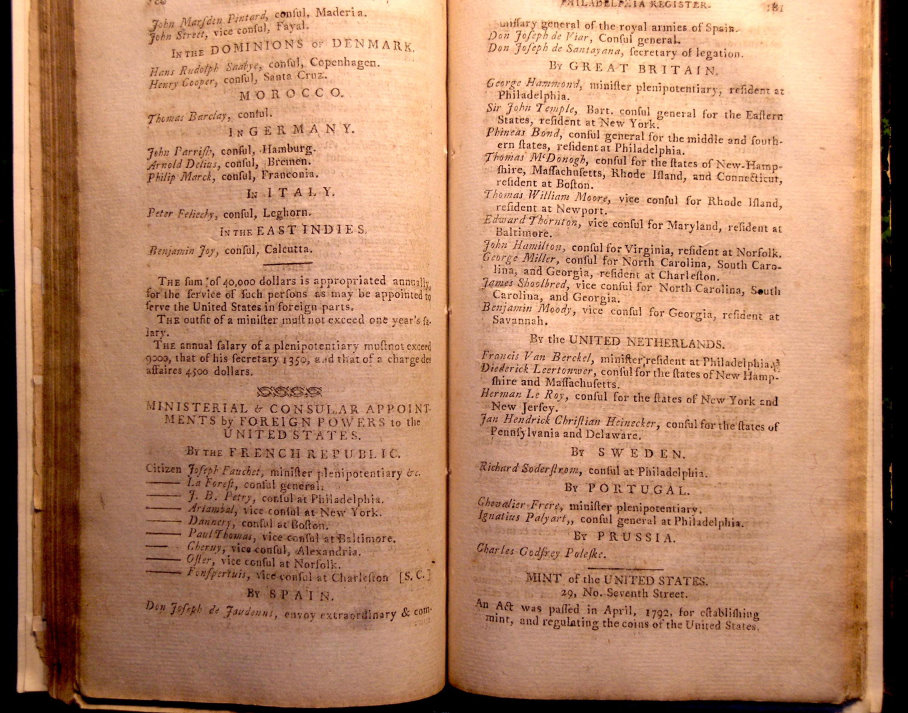 John Marſden Pintard, conſul, Maderia.
John Street, vice conſul, Fayal.
IN THE DOMINIONS OF DENMARK.
Hans Rudolph Saabye, conſul, Copenhagen.
Henry Cooper, conſul, Santa Cruz.
MOROCCO.
Thomas Barclay, conſul.
IN GERMANY.
John Parriſh, conſul, Hamburg.
Arnold Delius, conſul, Bremen.
Philip Marck, conſul, Franconia.
IN ITALY.
Peter Felicchy, conſul, Leghorn.
IN THE EAST INDIES.
Benjamin Joy, conſul, Calcutta.
THE ſum of 40,000 dollars is appropriated annually,
for the ſervice of ſuch perſons as may be appointed to
ſerve the United States in foreign parts.
THE outfit of a miniſter muſt not exceed one year's ſa-
lary.
THE annual ſalary of a plenipotentiary muſt not exceed
9000, that of his ſecretary 1350, and that of a charge des
affaires 4500 dollars.
MINISTERIAL & CONSULAR APPOINT-
MENTS by FOREIGN POWERS to the
UNITED STATES.
BY THE FRENCH REPUBLIC.
Citizen Joſeph Fauchet, miniſter plenipotentiary &c.
—— La Foreſt, conſul general.
—— J. B. Petry, conſul at Philadelphia.
—— Artambal, vice conſul at New York.
—— Dannery, conſul at Boſton.
—— Paul Thomas, vice conſul at Baltimore.
—— Cheruy, vice conſul, Alexandria.
—— Oſter, vice conſul at Norfolk.
—— Fonſpertuis, vice conſul at Charleſton [S. C.]
BY SPAIN.
Don Joſeph de Jaudenes, envoy extraordinary & com-
PHILADELPHIA REGISTER. 181
miſſary general of the royal armies of Spain.
Don Joſeph de Viar, Conſul general.
Don Joſeph de Santayana, ſecretary of legation.
BY GREAT BRITAIN.
George Hammond, miniſter plenipotentiary, reſident at
Philadelphia.
Sir John Temple, Bart. conſul general for the Eaſtern
States, reſident at New York.
Phineas Bond, conſul general for the middle and ſouth-
ern ſtates, reſident at Philadelphia.
Thomas McDonogh, conſul for the ſtates of New-Hamp-
ſhire, Maſſachuſetts, Rhode Iſland, and Connecticut,
reſident at Boſton.
Thomas William Moore, vice conſul for Rhode Iſland,
reſident at Newport.
Edward Thornton, vice conſul for Maryland, reſident at
Baltimore.
John Hamilton, conſul for Virginia, reſident at Norfolk.
George Miller, conſul for North Carolina, South Caro-
lina, and Georgia, reſident at Charleſton.
James Shoolbred, vice conſul for North Carolina, South
Carolina, and Georgia.
Benjamin Moody, vice conſul for Georgia, reſident at
Savannah.
By the UNITED NETHERLANDS.
Francis Van Berckel, miniſter reſident at Philadelphia.
Diederick Leertonwer, conſul for the ſtates of New Hamp-
ſhire and Maſſachuſetts.
Herman Le Roy, conſul for the ſtates of New York and
New Jerſey.
Jan Hendrick Chriſtian Heinecker, conſul for the ſtates of
Pennſylvania and Delaware.
BY SWEDEN.
Richard Soderſtrom, conſul at Philadelphia.
BY PORTUGAL.
Chevalier Frere, miniſter plenipotentiary.
Ignatius Palyart,, conſul general at Philadelphia.
BY PRUSSIA.
Charles Godfrey Poleſke.
MINT of the UNITED STATES.
29, No. Seventh Street.
An Act was paſſed in April, 1792, for eſtabliſhing
mint, and regulating the coins of the United States.